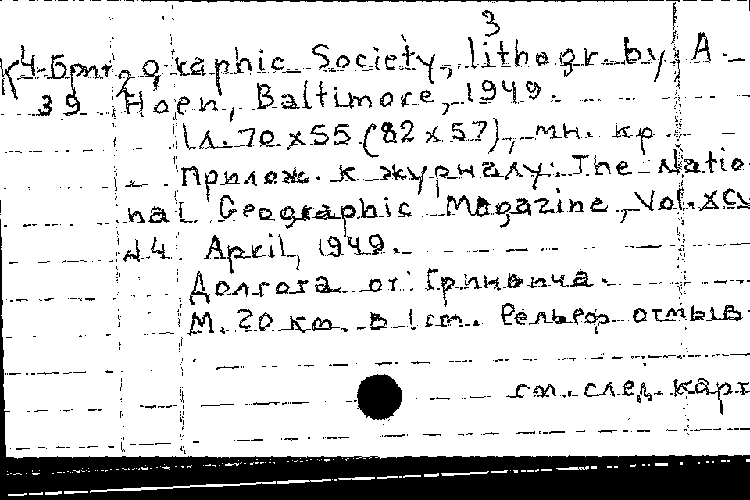 3
К4-Брит, graphic Society, lithogr. by A.
39 Hoen, Baltimore, 1949.
1л. 70 x 55 (82 x 57), мн. кр.
Прилож. к журналу: The Natio
nal Geographic Magazine, Vol. XCV
N4 April, 1949.
Долгота от Гринвича.
М. 20 км. в 1 см. Рельеф отмыв
см. след. карт